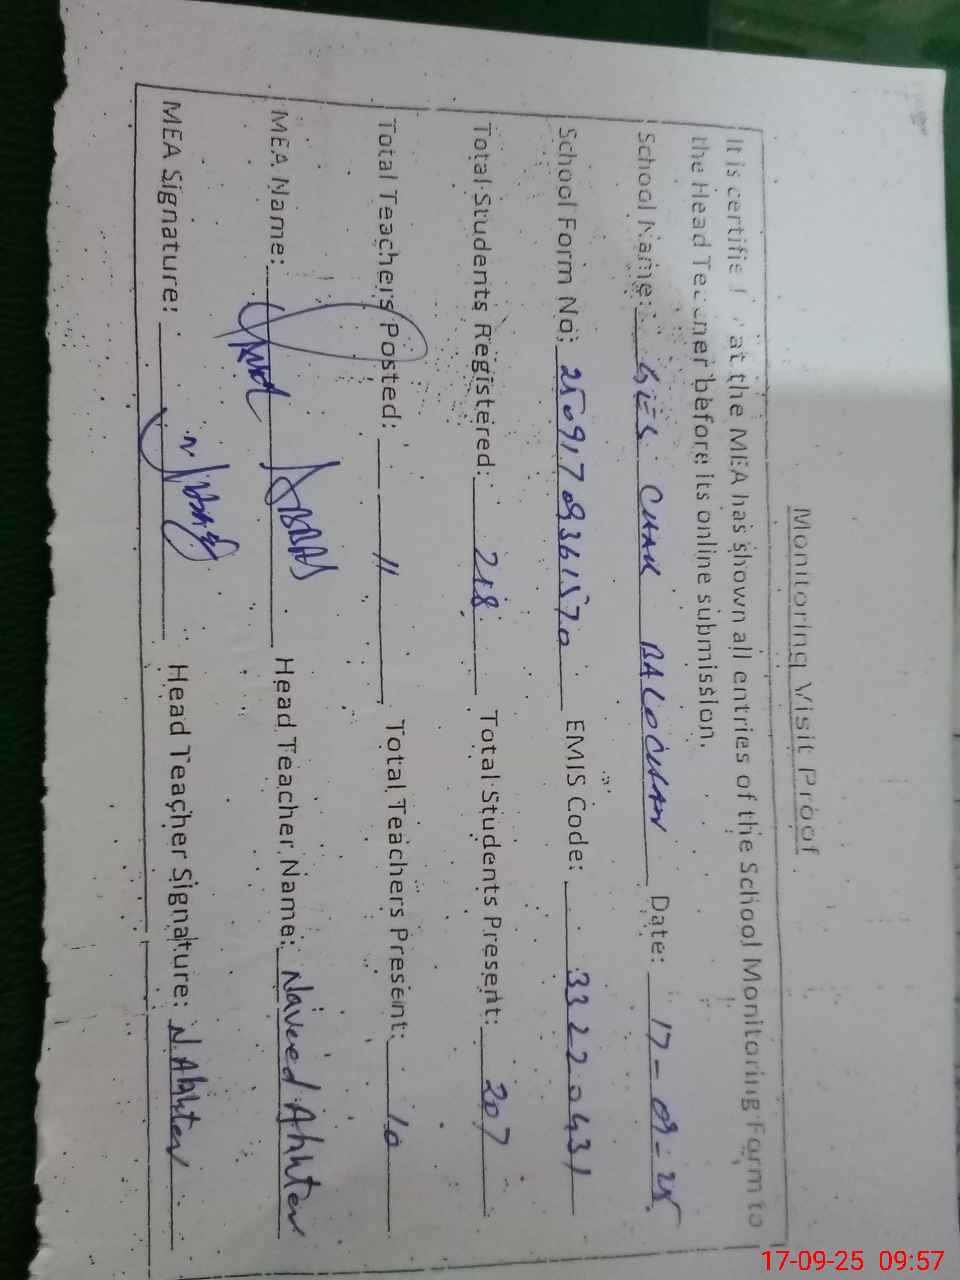 Monitoring Visit Proof
It is certified that the MEA has shown all entries of the School Monitoring Form to
the Head Teacher before its online submission.
School Name: GES CHAK BALOCHAN Date: 17-09-25
School Form No: 25091709361570 EMIS Code: 33220431
Total Students Registered: 218 Total Students Present: 207
Total Teachers Posted: 11 Total Teachers Present: 10
MEA Name: Head Teacher Name: Naveed Akhter
MEA Signature: Head Teacher Signature: N. Akhter
17-09-25 09:57